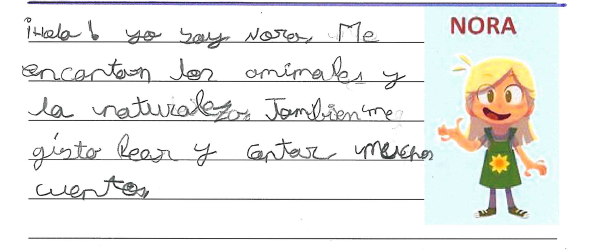 ¡Hola! yo soy Nora, Me
encantan los animales y
la naturaleza También me
gusto lear y cantar muchos
cuentos
NORA